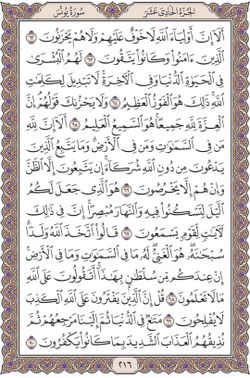 الجزء الحادي عشر
سورة يونس
أَلَآ إِنَّ أَوْلِيَآءَ ٱللَّهِ لَا خَوْفٌ عَلَيْهِمْ وَلَا هُمْ يَحْزَنُونَ ٦٢
ٱلَّذِينَ ءَامَنُوا۟ وَكَانُوا۟ يَتَّقُونَ ٦٣ لَهُمُ ٱلْبُشْرَىٰ
فِى ٱلْحَيَوٰةِ ٱلدُّنْيَا وَفِى ٱلْءَاخِرَةِ لَا تَبْدِيلَ لِكَلِمَٰتِ
ٱللَّهِ ذَٰلِكَ هُوَ ٱلْفَوْزُ ٱلْعَظِيمُ ٦٤ وَلَا يَحْزُنكَ قَوْلُهُمْ إِنَّ
ٱلْعِزَّةَ لِلَّهِ جَمِيعًا هُوَ ٱلسَّمِيعُ ٱلْعَلِيمُ ٦٥ أَلَآ إِنَّ لِلَّهِ
مَن فِى ٱلسَّمَٰوَٰتِ وَمَن فِى ٱلْأَرْضِ وَمَا يَتَّبِعُ ٱلَّذِينَ
يَدْعُونَ مِن دُونِ ٱللَّهِ شُرَكَآءَ إِن يَتَّبِعُونَ إِلَّا ٱلظَّنَّ
وَإِنْ هُمْ إِلَّا يَخْرُصُونَ ٦٦ هُوَ ٱلَّذِى جَعَلَ لَكُمُ
ٱلَّيْلَ لِتَسْكُنُوا۟ فِيهِ وَٱلنَّهَارَ مُبْصِرًا إِنَّ فِى ذَٰلِكَ
لَءَايَٰتٍ لِّقَوْمٍ يَسْمَعُونَ ٦٧ قَالُوا۟ ٱتَّخَذَ ٱللَّهُ وَلَدًا
سُبْحَٰنَهُۥ هُوَ ٱلْغَنِىُّ لَهُۥ مَا فِى ٱلسَّمَٰوَٰتِ وَمَا فِى ٱلْأَرْضِ
إِنْ عِندَكُم مِّن سُلْطَٰنٍۭ بِهَٰذَآ أَتَقُولُونَ عَلَى ٱللَّهِ
مَا لَا تَعْلَمُونَ ٦٨ قُلْ إِنَّ ٱلَّذِينَ يَفْتَرُونَ عَلَى ٱللَّهِ ٱلْكَذِبَ
لَا يُفْلِحُونَ ٦٩ مَتَٰعٌ فِى ٱلدُّنْيَا ثُمَّ إِلَيْنَا مَرْجِعُهُمْ ثُمَّ
نُذِيقُهُمُ ٱلْعَذَابَ ٱلشَّدِيدَ بِمَا كَانُوا۟ يَكْفُرُونَ ٧٠
٢١٦